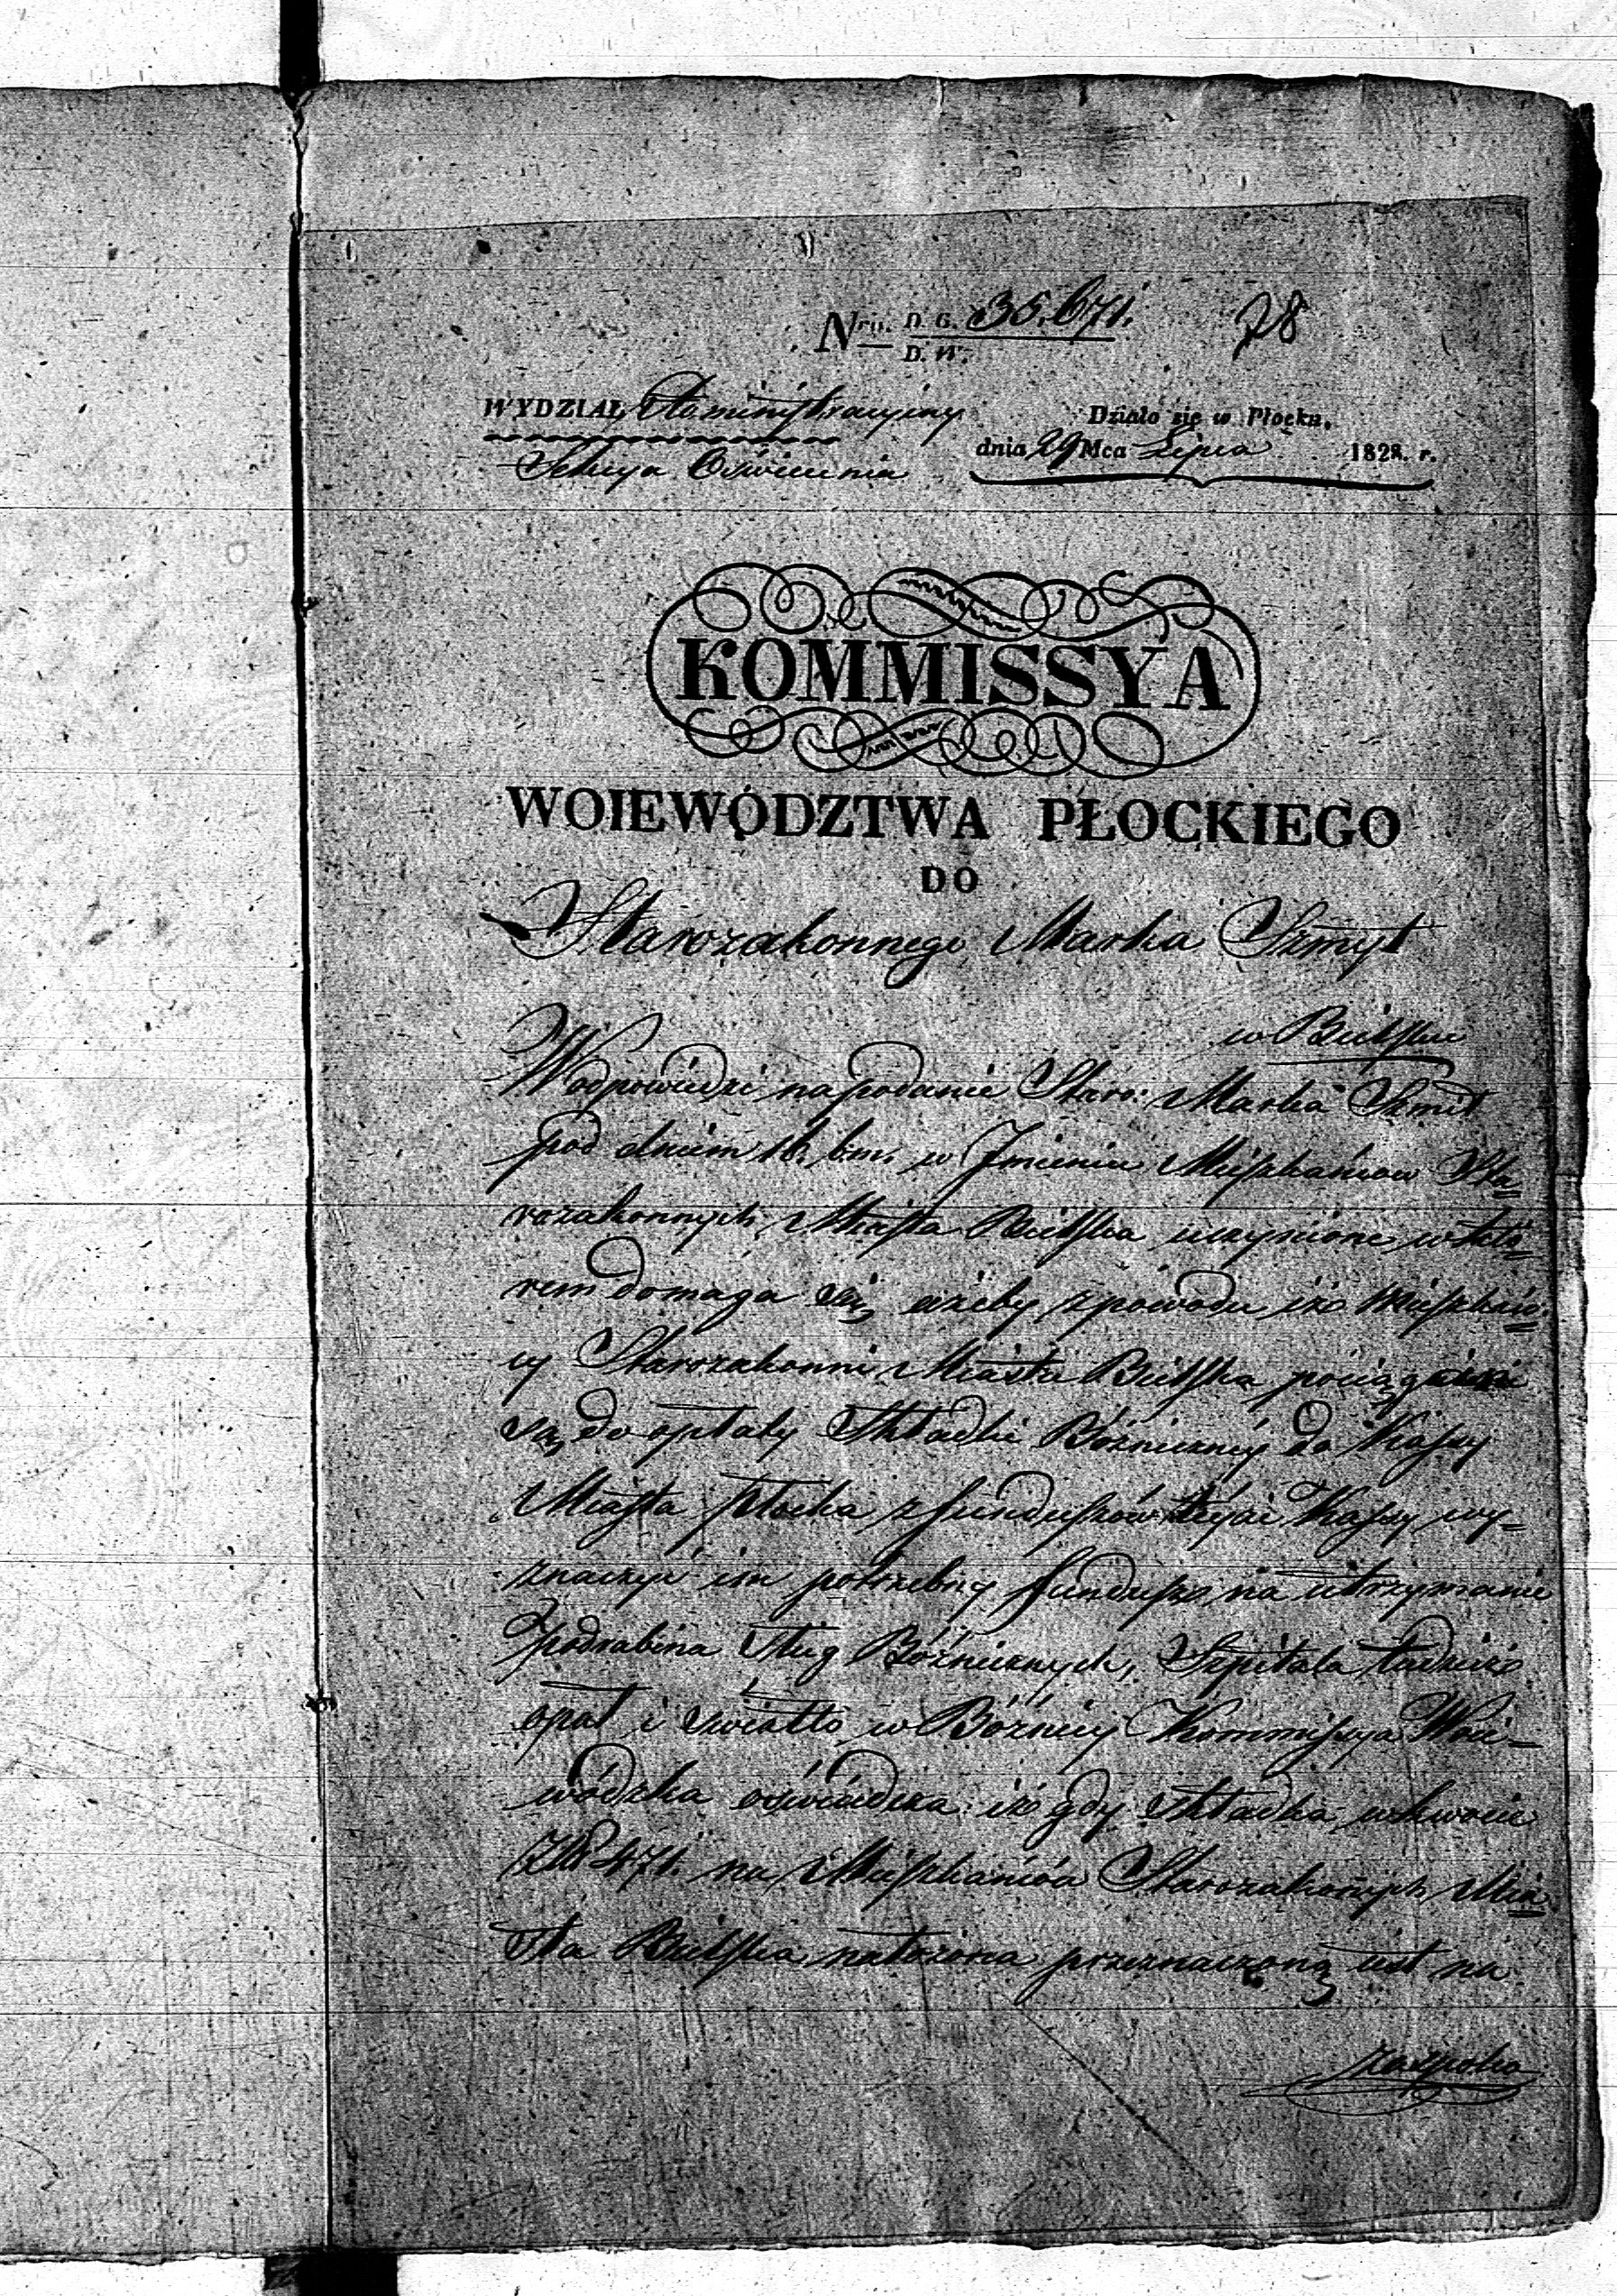 Nro. D. G. 35,671. 78
D. W.
WYDZIAŁ Administracyiny Działo się w Płocku,
Sekcya Oświecenia dnia 29 Mca Lipca 1828. r.
KOMMISSYA
WOIEWÓDZTWA PŁOCKIEGO
DO
Starozakonnego Marka Szmyt
w Bielsku
W odpowiedzi na podanie Staro: Marka Szmit
pod dniem 16. b.m. w Jmieniu Mieszkańcow Sta=
rozakonnych Miasta Bielska uczynione w któ=
rem domaga się ażeby z powodu iż Mieszkań=
cy Starozakonni Miasta Bielska pociągnieni
są do opłaty Składki Bóżniczney do Kassy
Miasta Płocka z funduszów teyże Kassy wy=
znaczyć im potrzebny fundusz na utrzymanie
Podrabina Sług Bóżnicznych, Szpitala tudzież
opał i światło w Bóżnicy Kommissya Woie=
wódzka oświadcza iż gdy składka w kwocie
Złp 471. na Mieszkańców Starozakonnych Mia=
sta Bielska nałożona przeznaczoną iest na